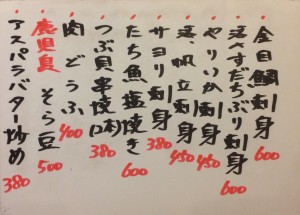 金目鯛刺身 600
活〆すだちぶり刺身 600
やりいか刺身 450
活、帆立刺身 450
サヨリ刺身 380
たち魚塩焼き 600
つぶ貝串焼(2本) 380
肉どうふ 400
鹿児島 そら豆 500
アスパラバター炒め 380